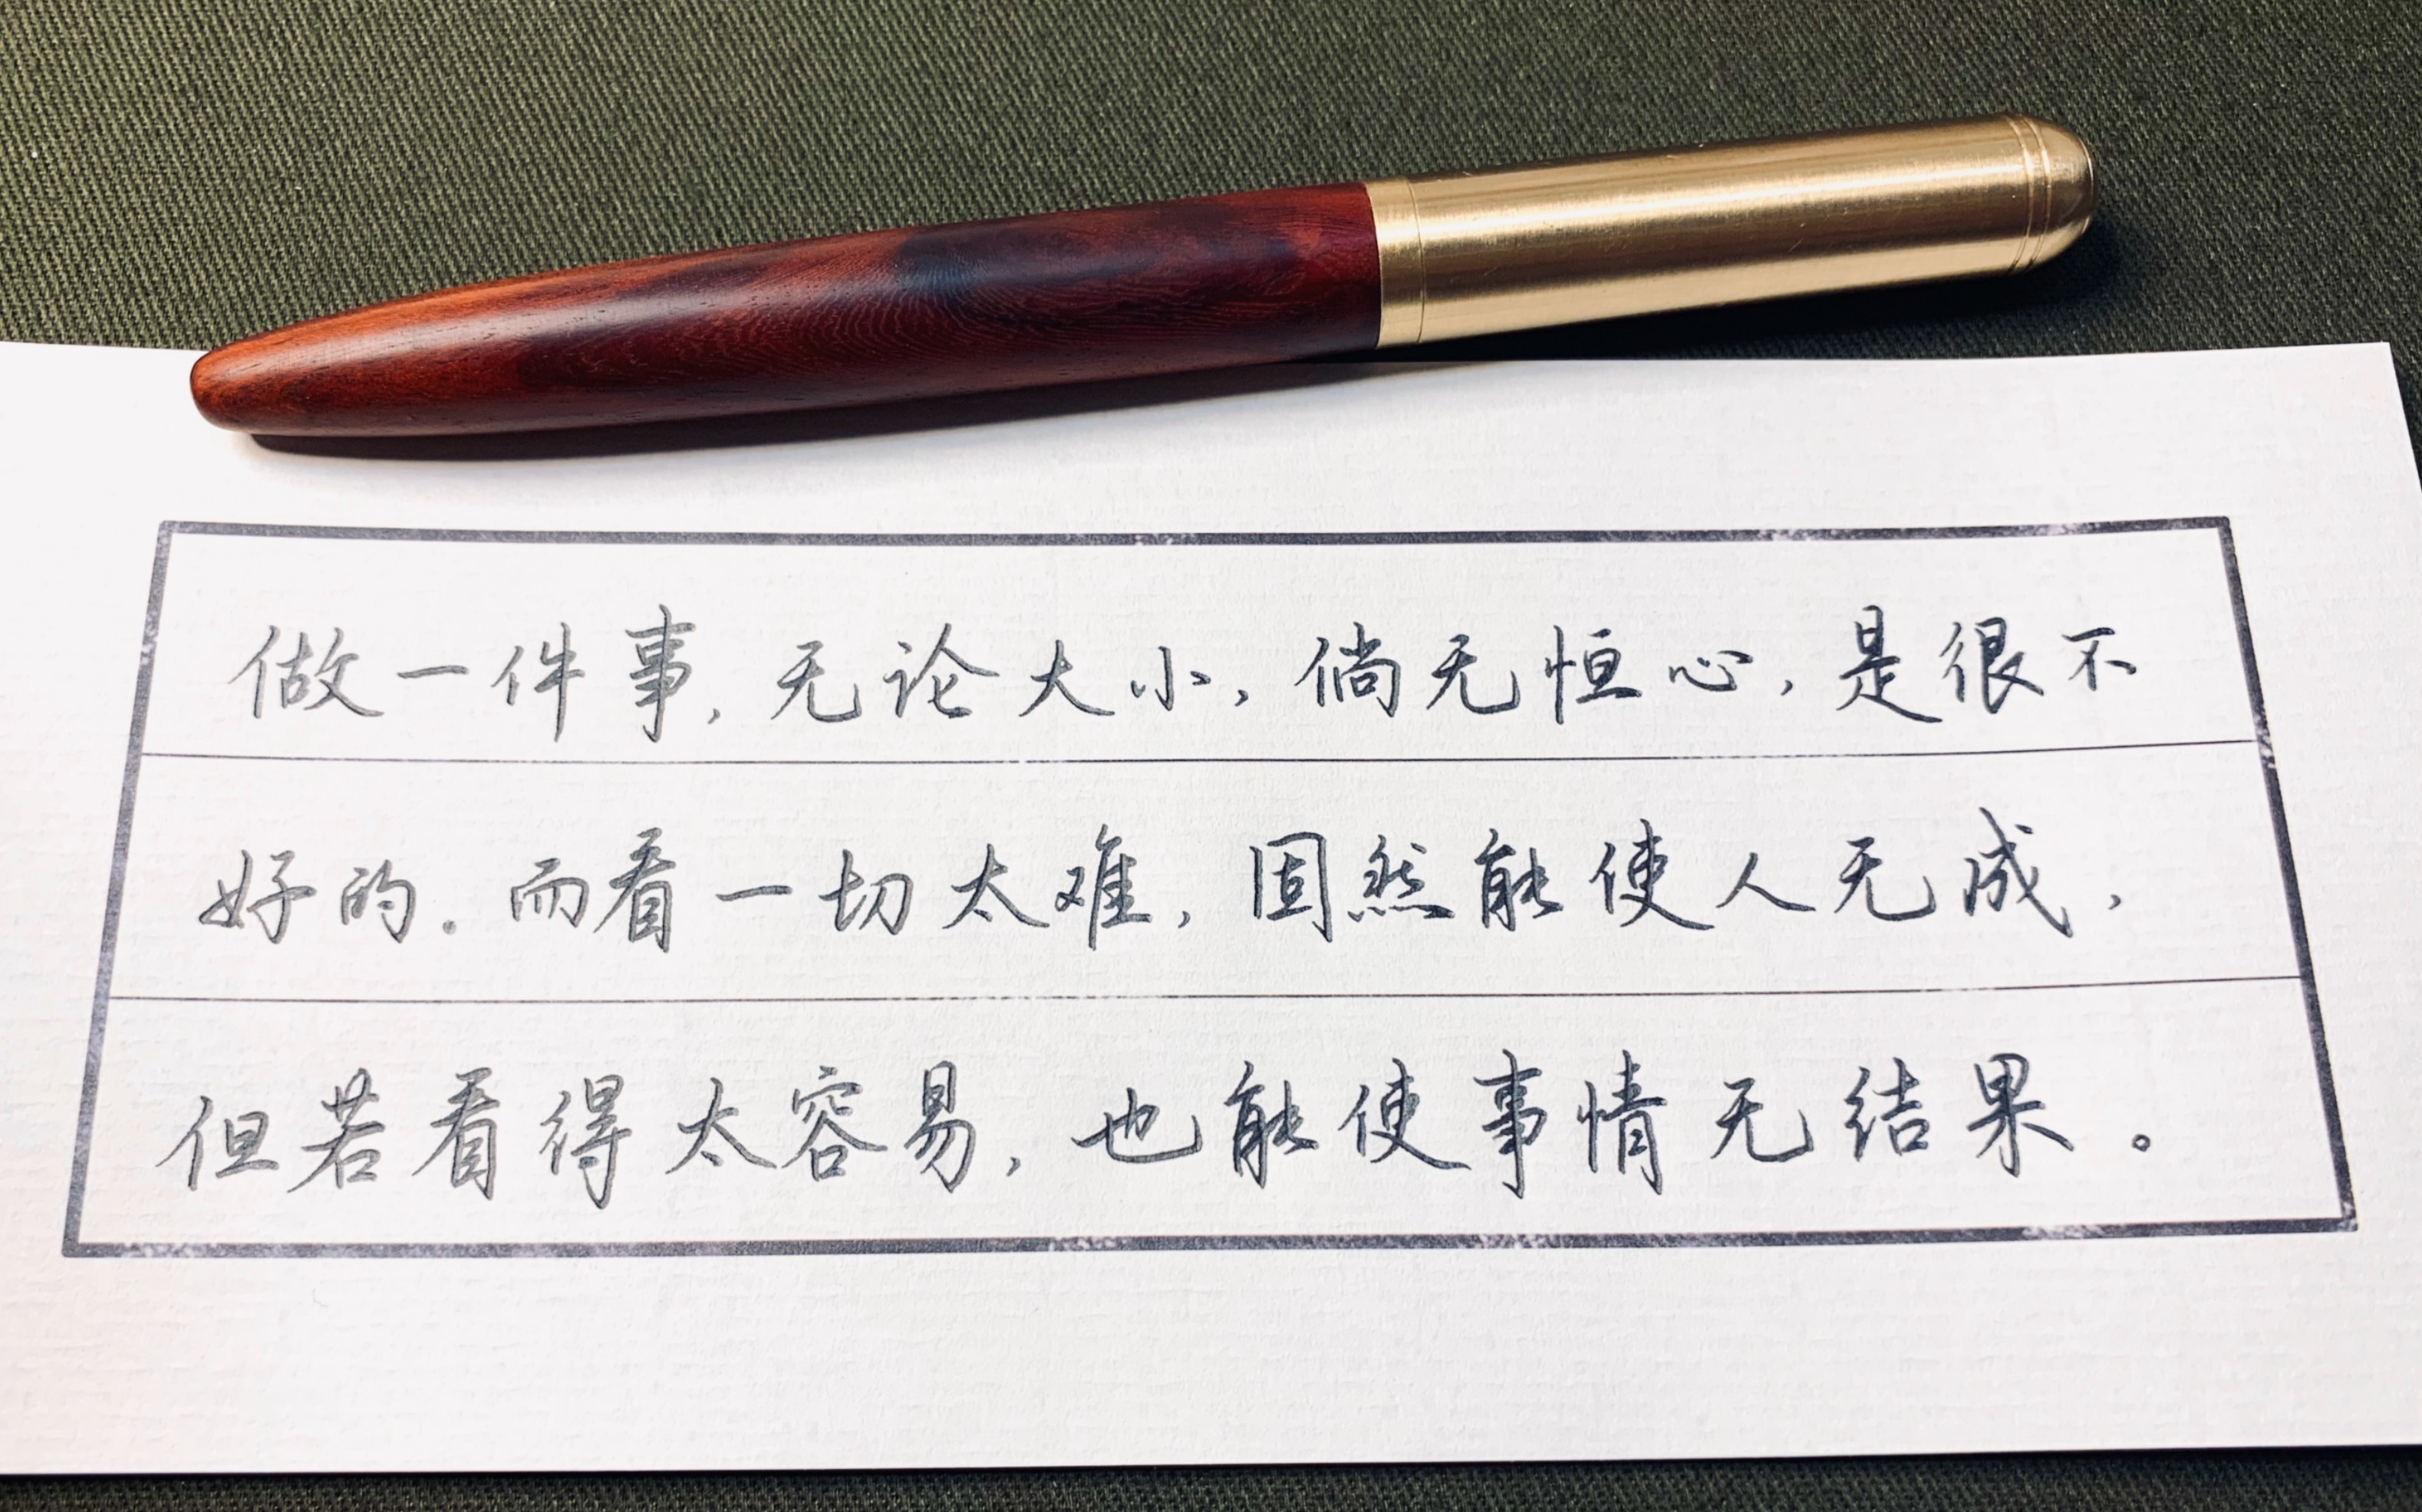 做一件事，无论大小，倘无恒心，是很不
好的。而看一切太难，固然能使人无成，
但若看得太容易，也能使事情无结果。